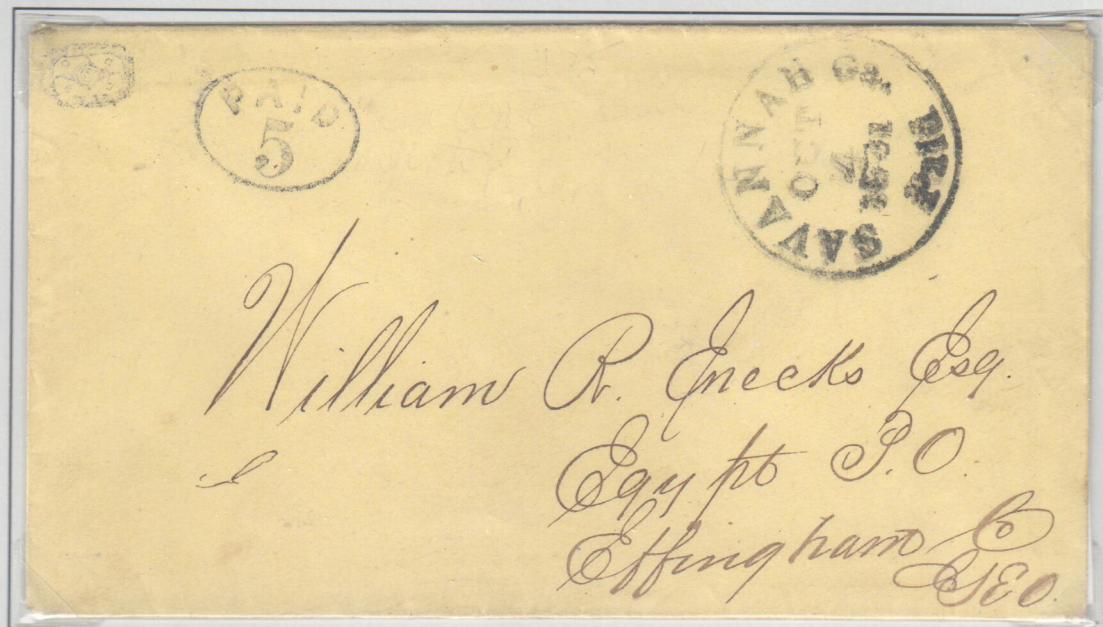 PAID
5
SAVANNAH Ga. PAID
OCT
4
1861
William R. Enecks Esq.
Egypt P.O.
Effingham Co
GEO.